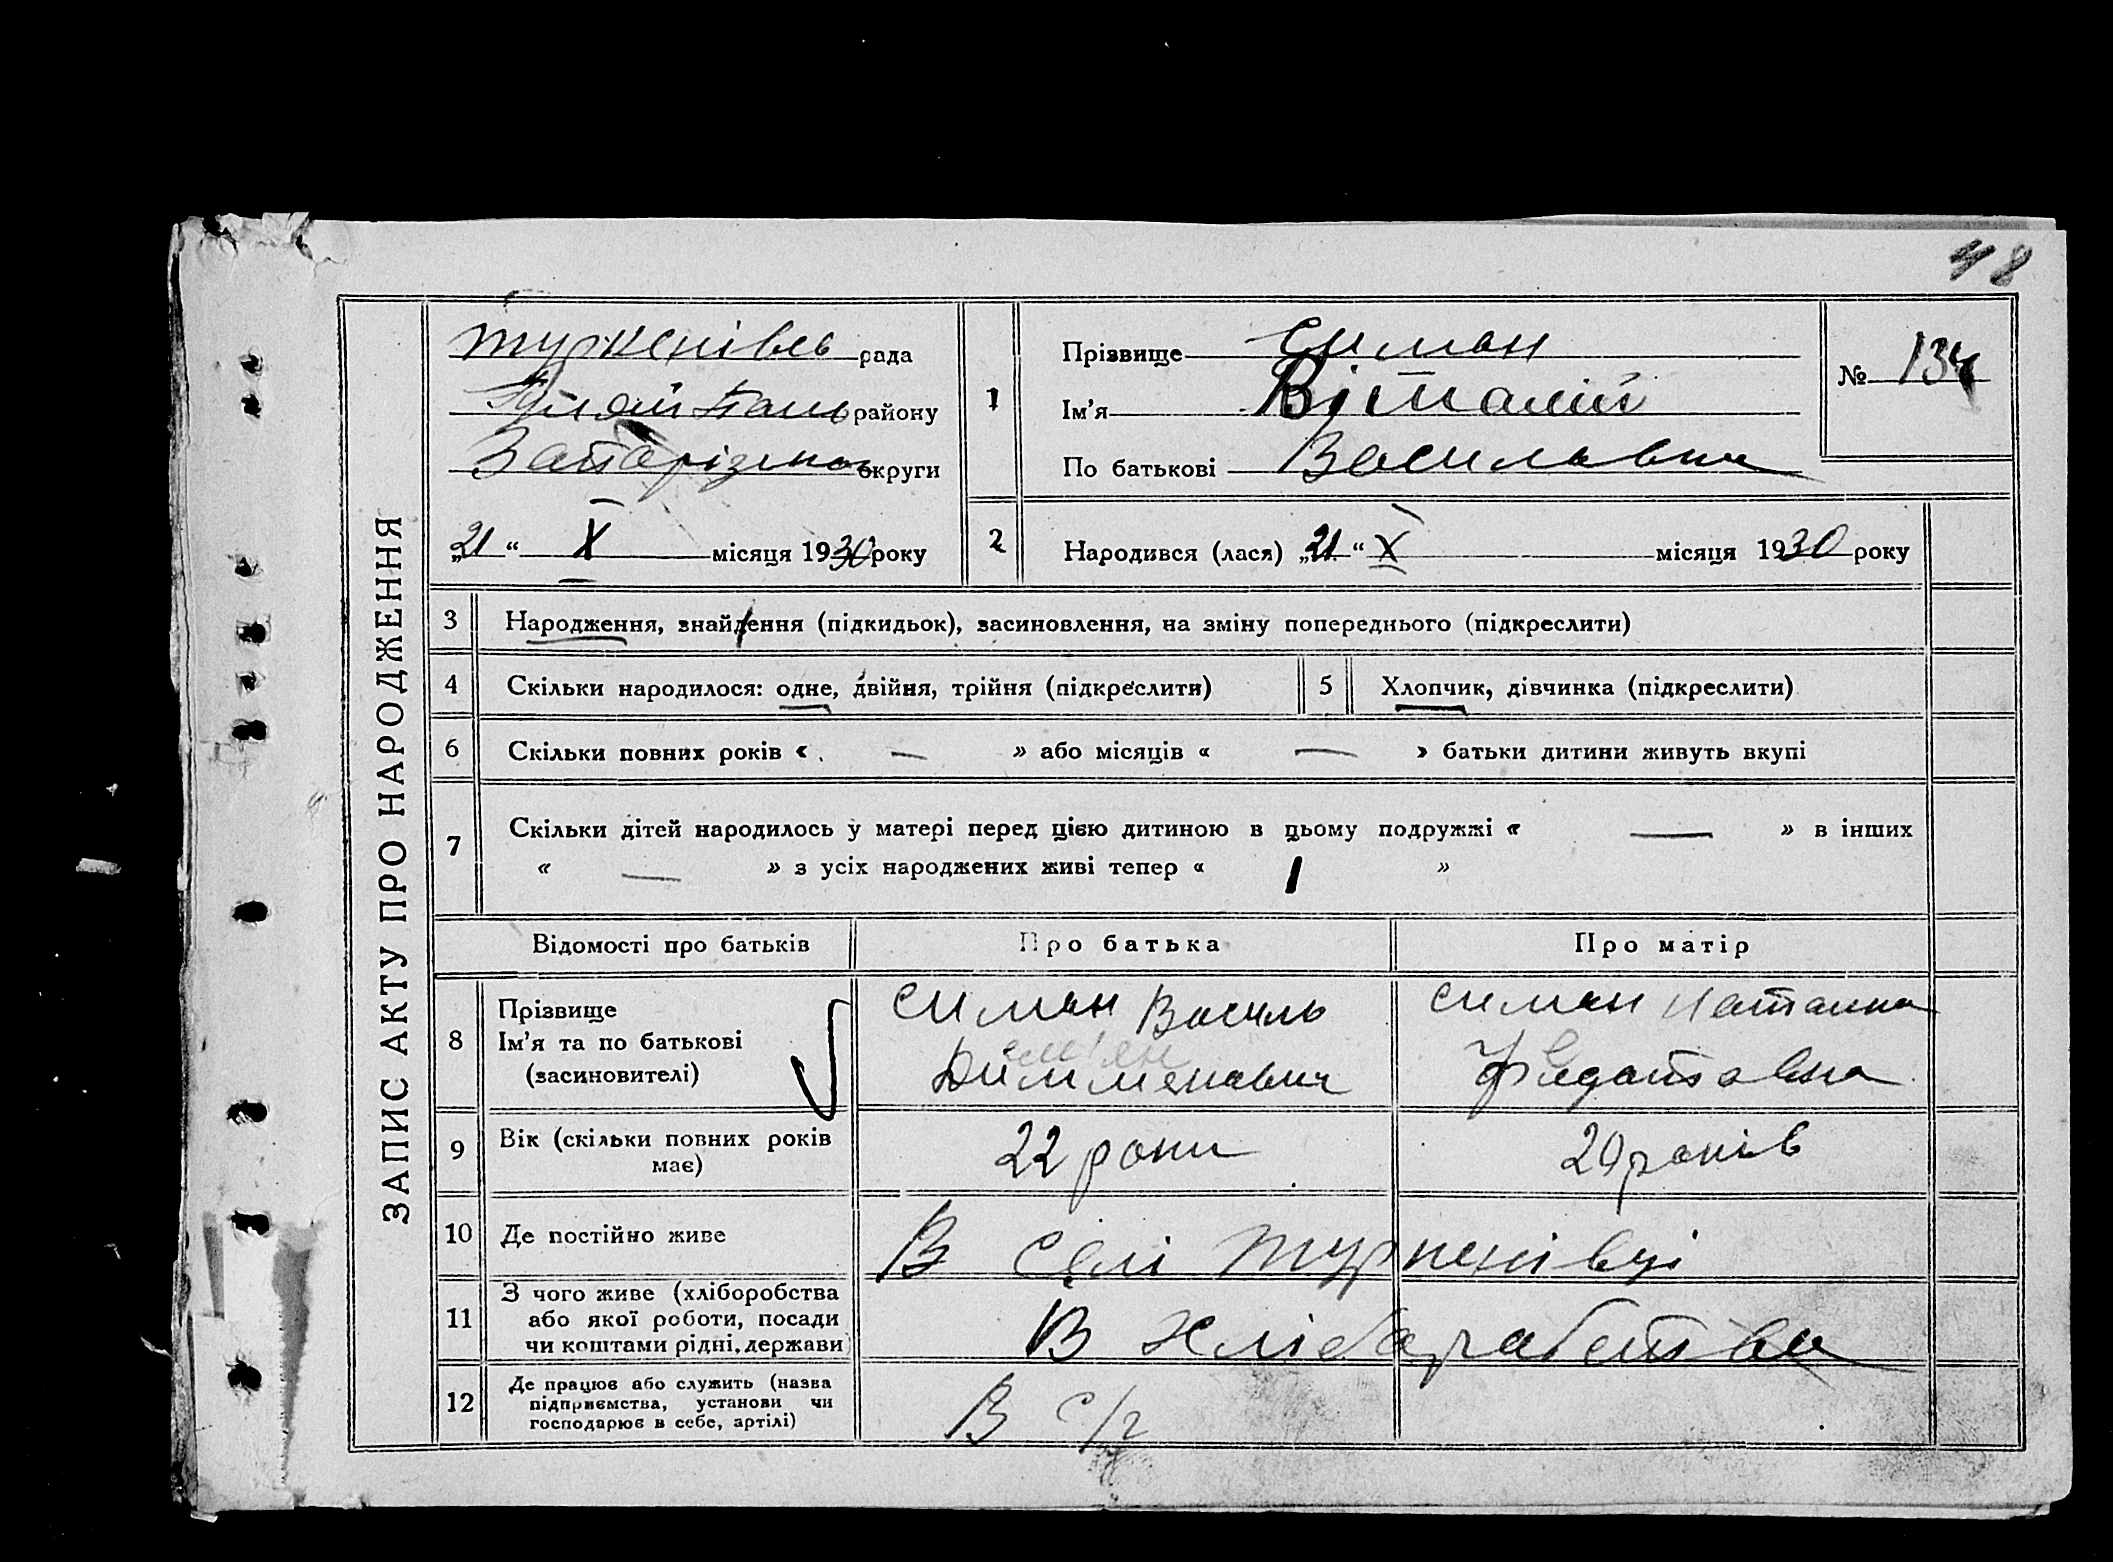 48
ЗАПИС АКТУ ПРО НАРОДЖЕННЯ
Туркенівсь рада
району
Запорізько округи
„21“ X місяця 1930 року
1
Прізвище Симан
Ім’я Віталій
По батькові Васильович
№ 134
2
Народився (лася) „21“ X місяця 1930 року
3 Народження, знайдення (підкидьок), засиновлення, на зміну попереднього (підкреслити)
4 Скільки народилося: одне, двійня, трійня (підкреслити)
5 Хлопчик, дівчинка (підкреслити)
6 Скільки повних років « — » або місяців « — » батьки дитини живуть вкупі
7 Скільки дітей народилось у матері перед цією дитиною в цьому подружжі « — » в інших
« — » з усіх народжених живі тепер « 1 »
Відомості про батьків Про батька Про матір
8 Прізвище
Ім’я та по батькові
(засиновителі)
Симан Василь
Симан Наталка
Федотовна
9 Вік (скільки повних років
має)
22 роки
29 років
10 Де постійно живе
В селі Туркенівці
11 З чого живе (хліборобства
або якої роботи, посади
чи коштами рідні, держави)
В хлібаработва
12 Де працює або служить (назва
підприємства, установи чи
господарює в себе, артілі)
В с/г